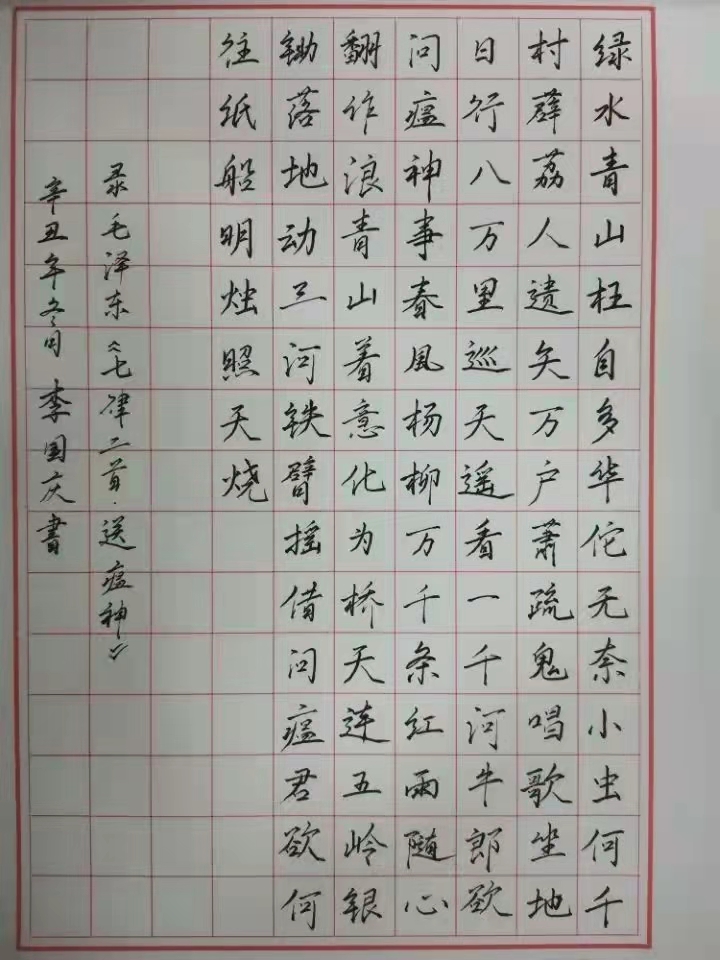 绿水青山枉自多华佗无奈小虫何千
村薜荔人遗矢万户萧疏鬼唱歌坐地
日行八万里巡天遥看一千河牛郎欲
问瘟神事春风杨柳万千条红雨随心
翻作浪青山着意化为桥天连五岭银
锄落地动三河铁臂摇借问瘟君欲何
往纸船明烛照天烧
录毛泽东《七律二首·送瘟神》
辛丑年冬月李国庆書